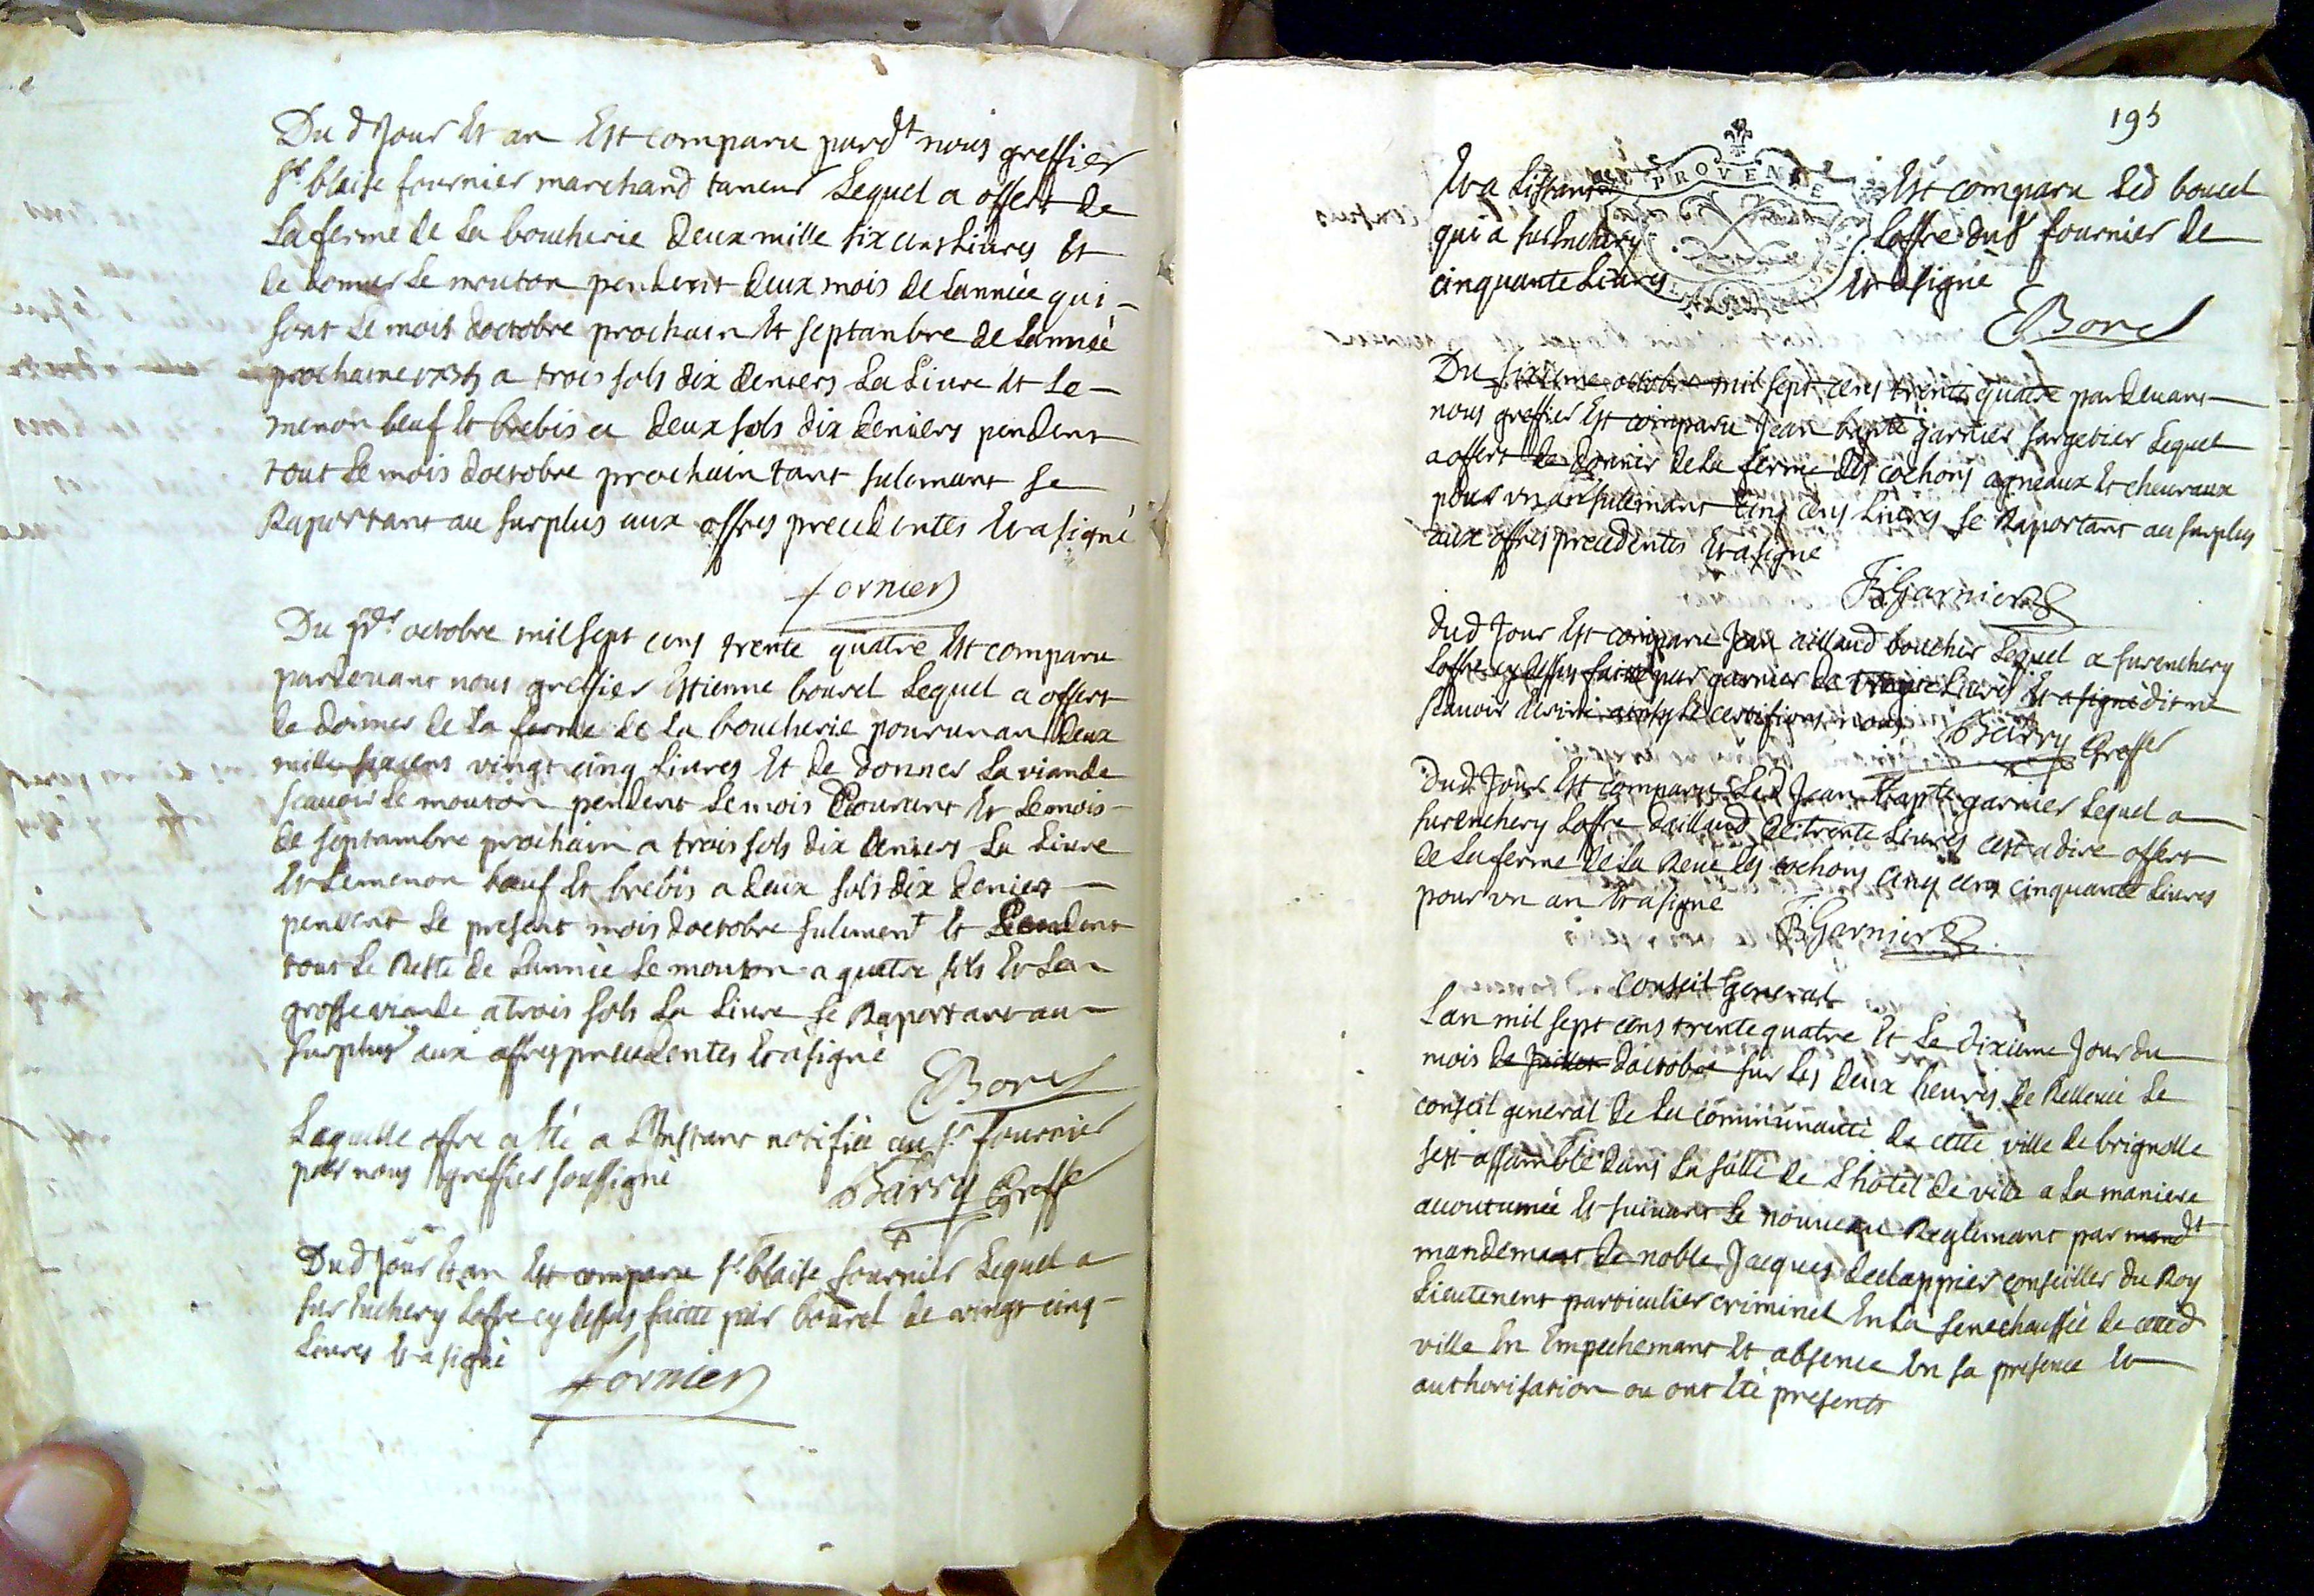 Du d Jour Et an Est comparu pard.t nous greffier
s.r blaise fournier marchand taneur Lequel a offert de
La ferme de La boucherie deux mille six cens Livres Et
de donner Le mouton pendent deux mois de Lannée qui
sont Le mois doctobre prochain Et septambre de Lannée
prochaine 1735 a trois sols dix deniers La Livre Et Le
menon beuf Et brebis a deux sols dix deniers pendent
tout Le mois doctobre prochain tant sulemant se
Raportant au surplus aux offres precedentes Et a signé
fornier
Du octobre mil sept cens trente quatre Est comparu
pardevant nous greffier Estienne bourel Lequel a offert
de donner de La ferme de La boucherie pour un an deux
mille six cens vingt cinq Livres Et de donner La viande
scavoir Le mouton pendent Le mois Courant Et Le mois
de septambre prochain a trois sols dix deniers La Livre
Et Le menon bœuf Et brebis a deux sols dix deniers
pendent Le present mois doctobre sulement Et Pendent
tout Le Reste de Lannée Le mouton a quatre sols Et La
grosse viande a trois sols La Livre se Raportant au
surplus aux offres precedentes Et a signé
EBorel
Laquelle offre a été a Linstant notifiée au s.r fournier
par nous greffier soussigné
Barry Greffe
Dud Jour Et an Est comparu s.r blaise fournier Lequel a
sur Enchery Loffre cy dessus faitte par bourel de vingt cinq
Livres Et a signé
fornier
195
PROVENCE
Et a Listant Est comparu Led bourel
qui a sur Enchery Loffre du s.r fournier de
cinquante Livres Et a signé
EBorel
Du sixieme octobre mil sept cens trente quatre pardevant
nous greffier Est comparu Jean bapte garnier sargetier Lequel
a offert de donner de La ferme des cochons agneaux Et chevraux
pour un an sulemant cinq cens Livres se Raportant au surplus
aux offres precedentes Et a signé
JBGarnier
dud Jour Est comparu Jean aillaud boucher Lequel a surenchery
Loffre cy dessus faitte par garnier de vingt Livres Et a signé dit ne
scavoir Escrire ainsy Le certifions nous
Barry Greffier
dud Jour Est comparu Led Jean Bapte garnier Lequel a
surenchery Loffre daillaud de trente Livres cest a dire offert
de La ferme de La Reve des cochons cinq cens cinquante Livres
pour un an Et a signé
JBGarnier
conseil general
Lan mil sept cens trente quatre Et Le dixieme Jour du
mois de Juillet doctobre sur Les deux heures de Rellevée Le
conseil general de La communauté de cette ville de brignolle
sest assamblé dans La salle de Lhotel de ville a La maniere
accoutumée Et suivant Le nouveau Reglemant par mandt
mandemant de noble Jacques declappier conseiller du Roy
Lieutenent particulier criminel En La senechaussée de cette d
ville En Empechemant Et absence En sa presence Et
authorisation ou ont été presents